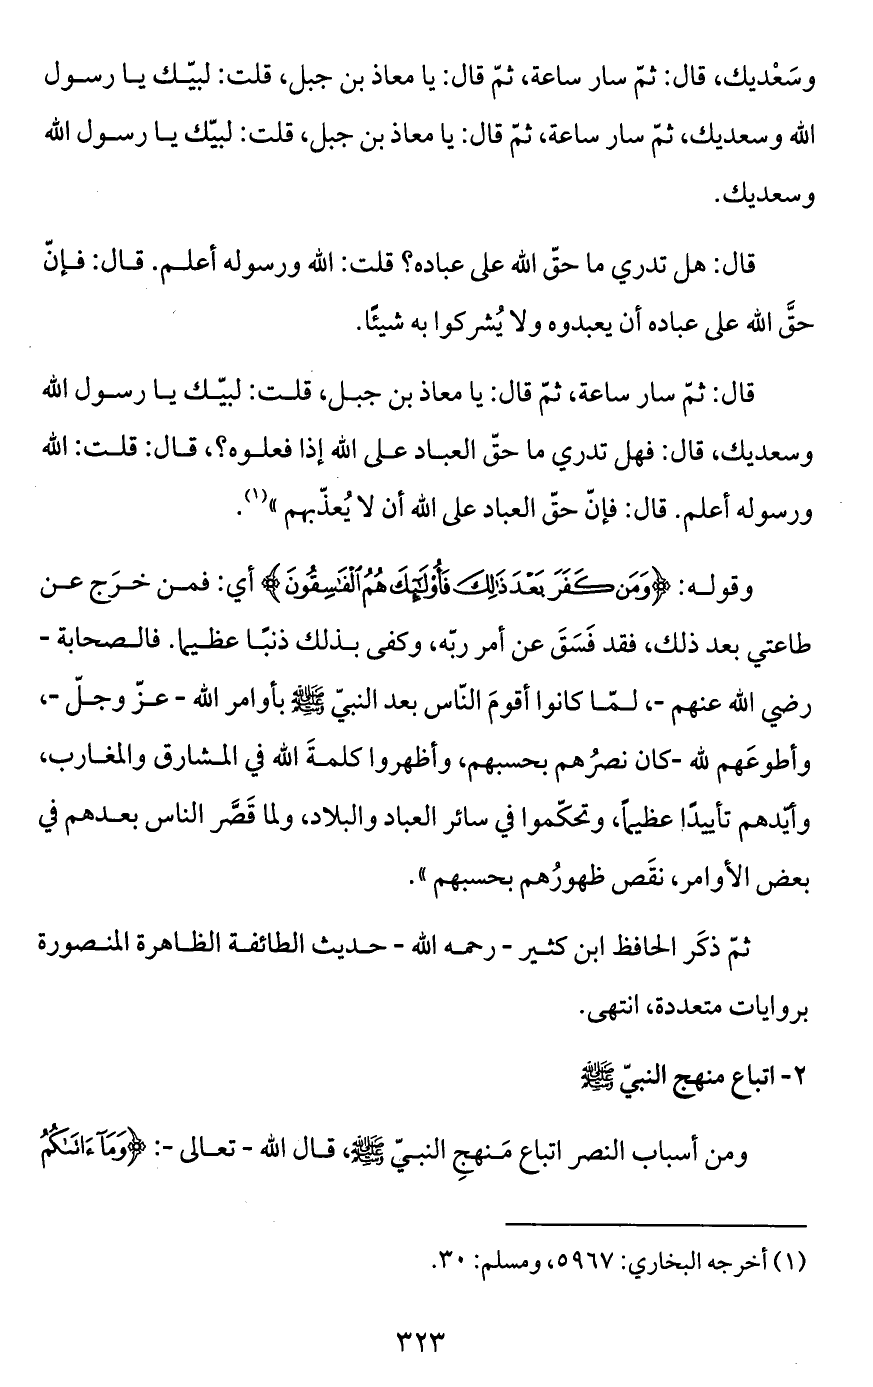 وسَعْديك، قال: ثمّ سار ساعة، ثمّ قال: يا معاذ بن جبل، قلت: لبيّـك يـا رسـول
الله وسعديك، ثمّ سار ساعة، ثمّ قال: يا معاذ بن جبل، قلت: لبيّك يـا رسول الله
وسعديك.
قال: هل تدري ما حقّ الله على عباده؟ قلت: الله ورسوله أعلـم. قـال: فـإنّ
حقَّ الله على عباده أن يعبدوه ولا يُشركوا به شيئًا.
قال: ثمّ سار ساعة، ثمّ قال: يا معاذ بن جبـل، قلـت: لبيّـك يـا رسـول الله
وسعديك، قال: فهل تدري ما حقّ العبـاد عـلى الله إذا فعلـوه؟، قـال: قلـت: الله
ورسوله أعلم. قال: فإنّ حقّ العباد على الله أن لا يُعذّبهم »(١).
وقولـه: ﴿وَمَن كَفَرَ بَعْدَ ذَٰلِكَ فَأُوْلَٰٓئِكَ هُمُ ٱلْفَٰسِقُونَ﴾ أي: فمـن خـرَج عـن
طاعتي بعد ذلك، فقد فَسَقَ عن أمر ربّه، وكفى بـذلك ذنبًـا عظيـما. فالـصحابة -
رضي الله عنهم -، لـمّـا كانوا أقومَ النّاس بعد النبيّ ﷺ بأوامر الله - عـزّ وجـلّ -،
وأطوعَهم لله -كان نصرُهم بحسبهم، وأظهروا كلمةَ الله في المـشارق والمغـارب،
وأيّدهم تأييدًا عظيماً، وتحكّموا في سائر العباد والبلاد، ولما قَصَّر الناس بعـدهم في
بعض الأوامر، نقَص ظهورُهم بحسبهم ».
ثمّ ذكَر الحافظ ابن كثـير - رحمـه الله - حـديث الطائفـة الظـاهرة المنـصورة
بروايات متعددة، انتهى.
٢- اتباع منهج النبيّ ﷺ
ومن أسباب النصر اتباع مَـنهجِ النبـيّ ﷺ، قـال الله - تعـالى -: ﴿وَمَآ ءَاتَىٰكُمُ
(١) أخرجه البخاري: ٥٩٦٧، ومسلم: ٣٠.
٣٢٣